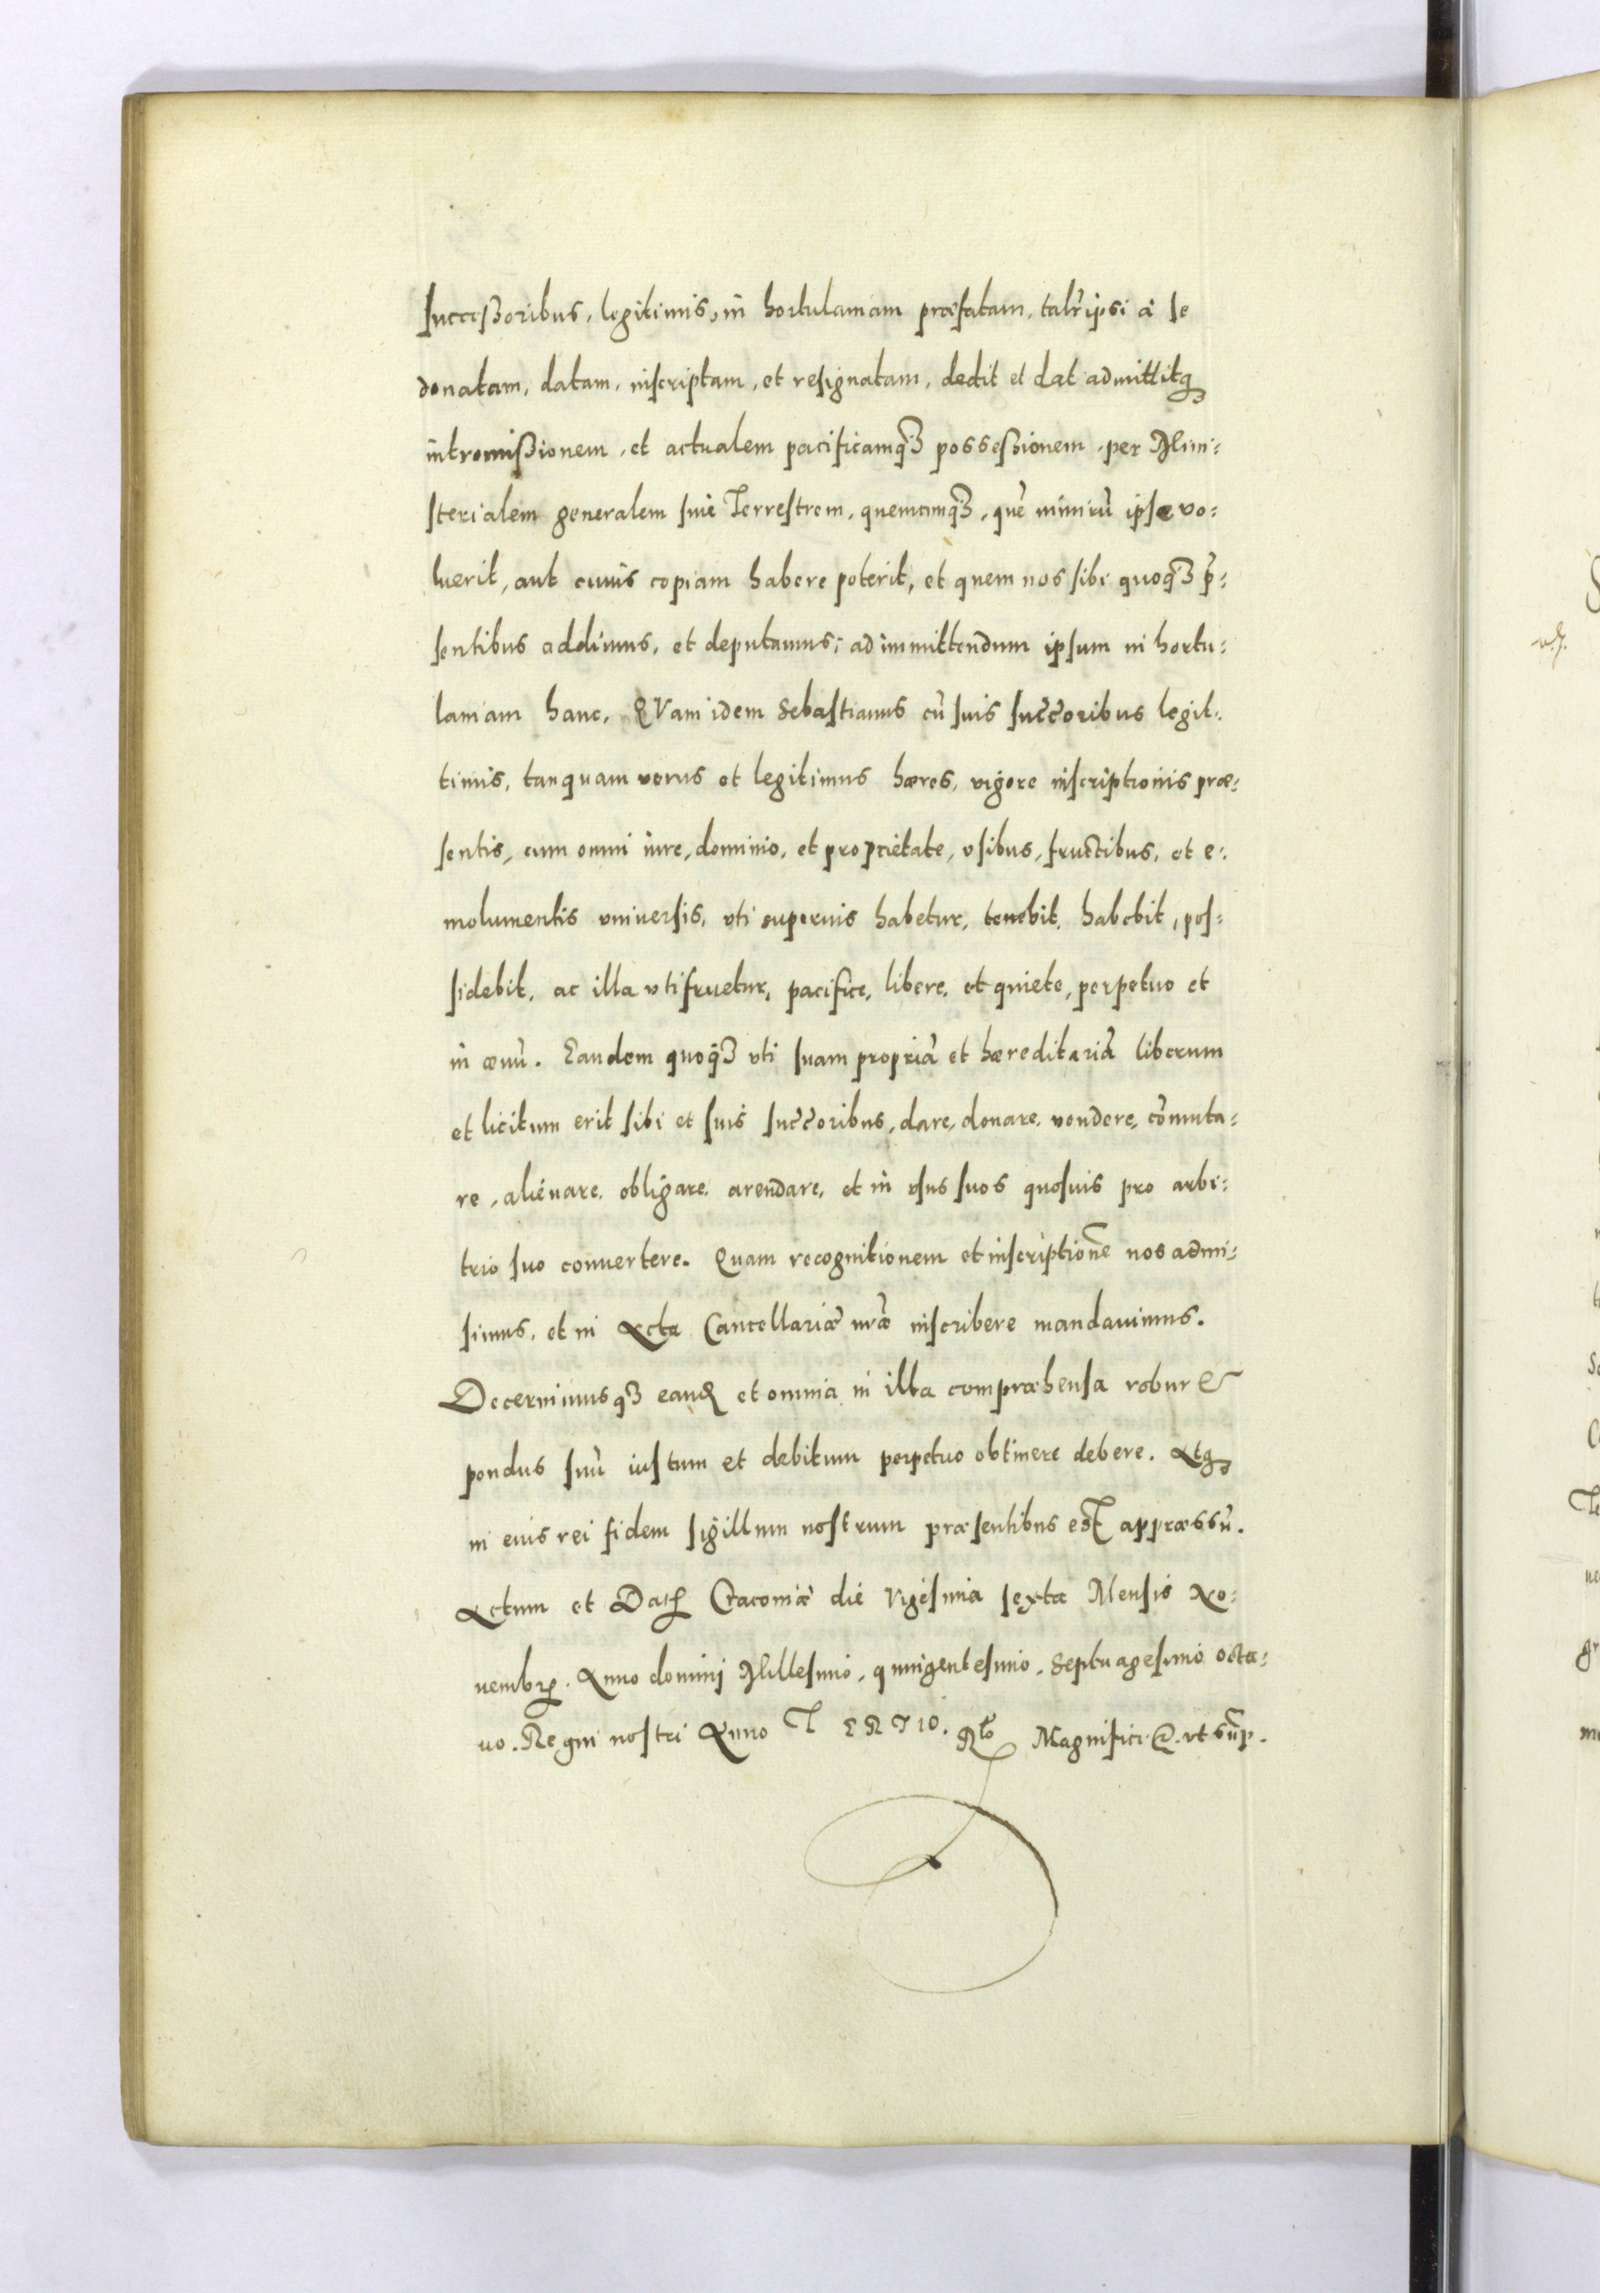 succeßoribus, legitimis, in hortulaniam præfatam, talr̃ ipsi a se
donatam, datam, inscriptam, et resignatam, dedit et dat admittitq;
intromißionem, et actualem pacificamq; possessionem, per Mini:
sterialem generalem siue Terrestrem, quemcunq;, quẽ nimirũ ipse vo:
luerit, aut cuius copiam habere poterit, et quem nos sibi quoq; p̃:
sentibus addimus, et deputamus, ad immittendum ipsum in hortu:
laniam hanc. QVam idem Sebastianus cũ suis succ̃oribus legit:
timis, tanquam verus et legitimus hæres, vigore inscriptionis præ:
sentis, cum omni iure, dominio, et proprietate, vsibus, fructibus, et e:
molumentis vniuersis, vti superuis habetur, tenebit, habebit, pos:
sidebit, ac illa vtifruetur, pacifice, libere, et quiete, perpetuo et
in æuũ. Eandem quoq; vti suam propriã et hæreditariã liberum
et licitum erit sibi et suis succ̃oribus, dare, donare, vendere, cõmuta:
re, alienare, obligare, arendare, et in vsus suos quosuis pro arbi:
trio suo conuertere. Quam recognitionem et inscriptionẽ nos admi:
simus, et in Acta Cancellariæ nr̃æ inscribere mandauimus.
Decernimusq; eand et omnia in illa compræhensa robur &
pondus suũ iustum et debitum perpetuo obtinere debere. Atq;
in euis rei fidem sigillum nostrum præsentibus est appræssũ.
Actum et Dat Cracouiæ die Vigesima sexta Mensis No:
uembr. Anno domini Millesimo, quingentesimo, Septuagesimo octa:
uo. Regni nostri Anno TERTIO. Rlo Magnifici &. vt sup̃.